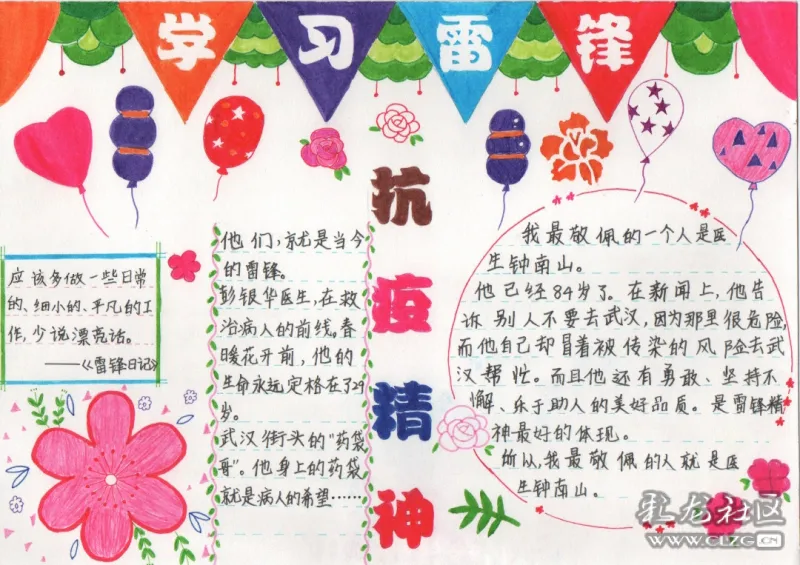 学习雷锋
抗疫精神
应该多做一些日常
的、细小的、平凡的工
作,少说漂亮话。
——《雷锋日记》
他们,就是当今
的雷锋。
彭银华医生,在救
治病人的前线。春
暖花开前,他的
生命永远定格在了29
岁。
武汉街头的“药袋
哥”。他身上的药袋
就是病人的希望……
我最敬佩的一个人是医
生钟南山。
他已经84岁了。在新闻上,他告
诉别人不要去武汉,因为那里很危险,
而他自己却冒着被传染的风险去武
汉帮忙。而且他还有勇敢、坚持不
懈、乐于助人的美好品质。是雷锋精
神最好的体现。
所以,我最敬佩的人就是医
生钟南山。
乳龙社区
WWW.CLZG.CN